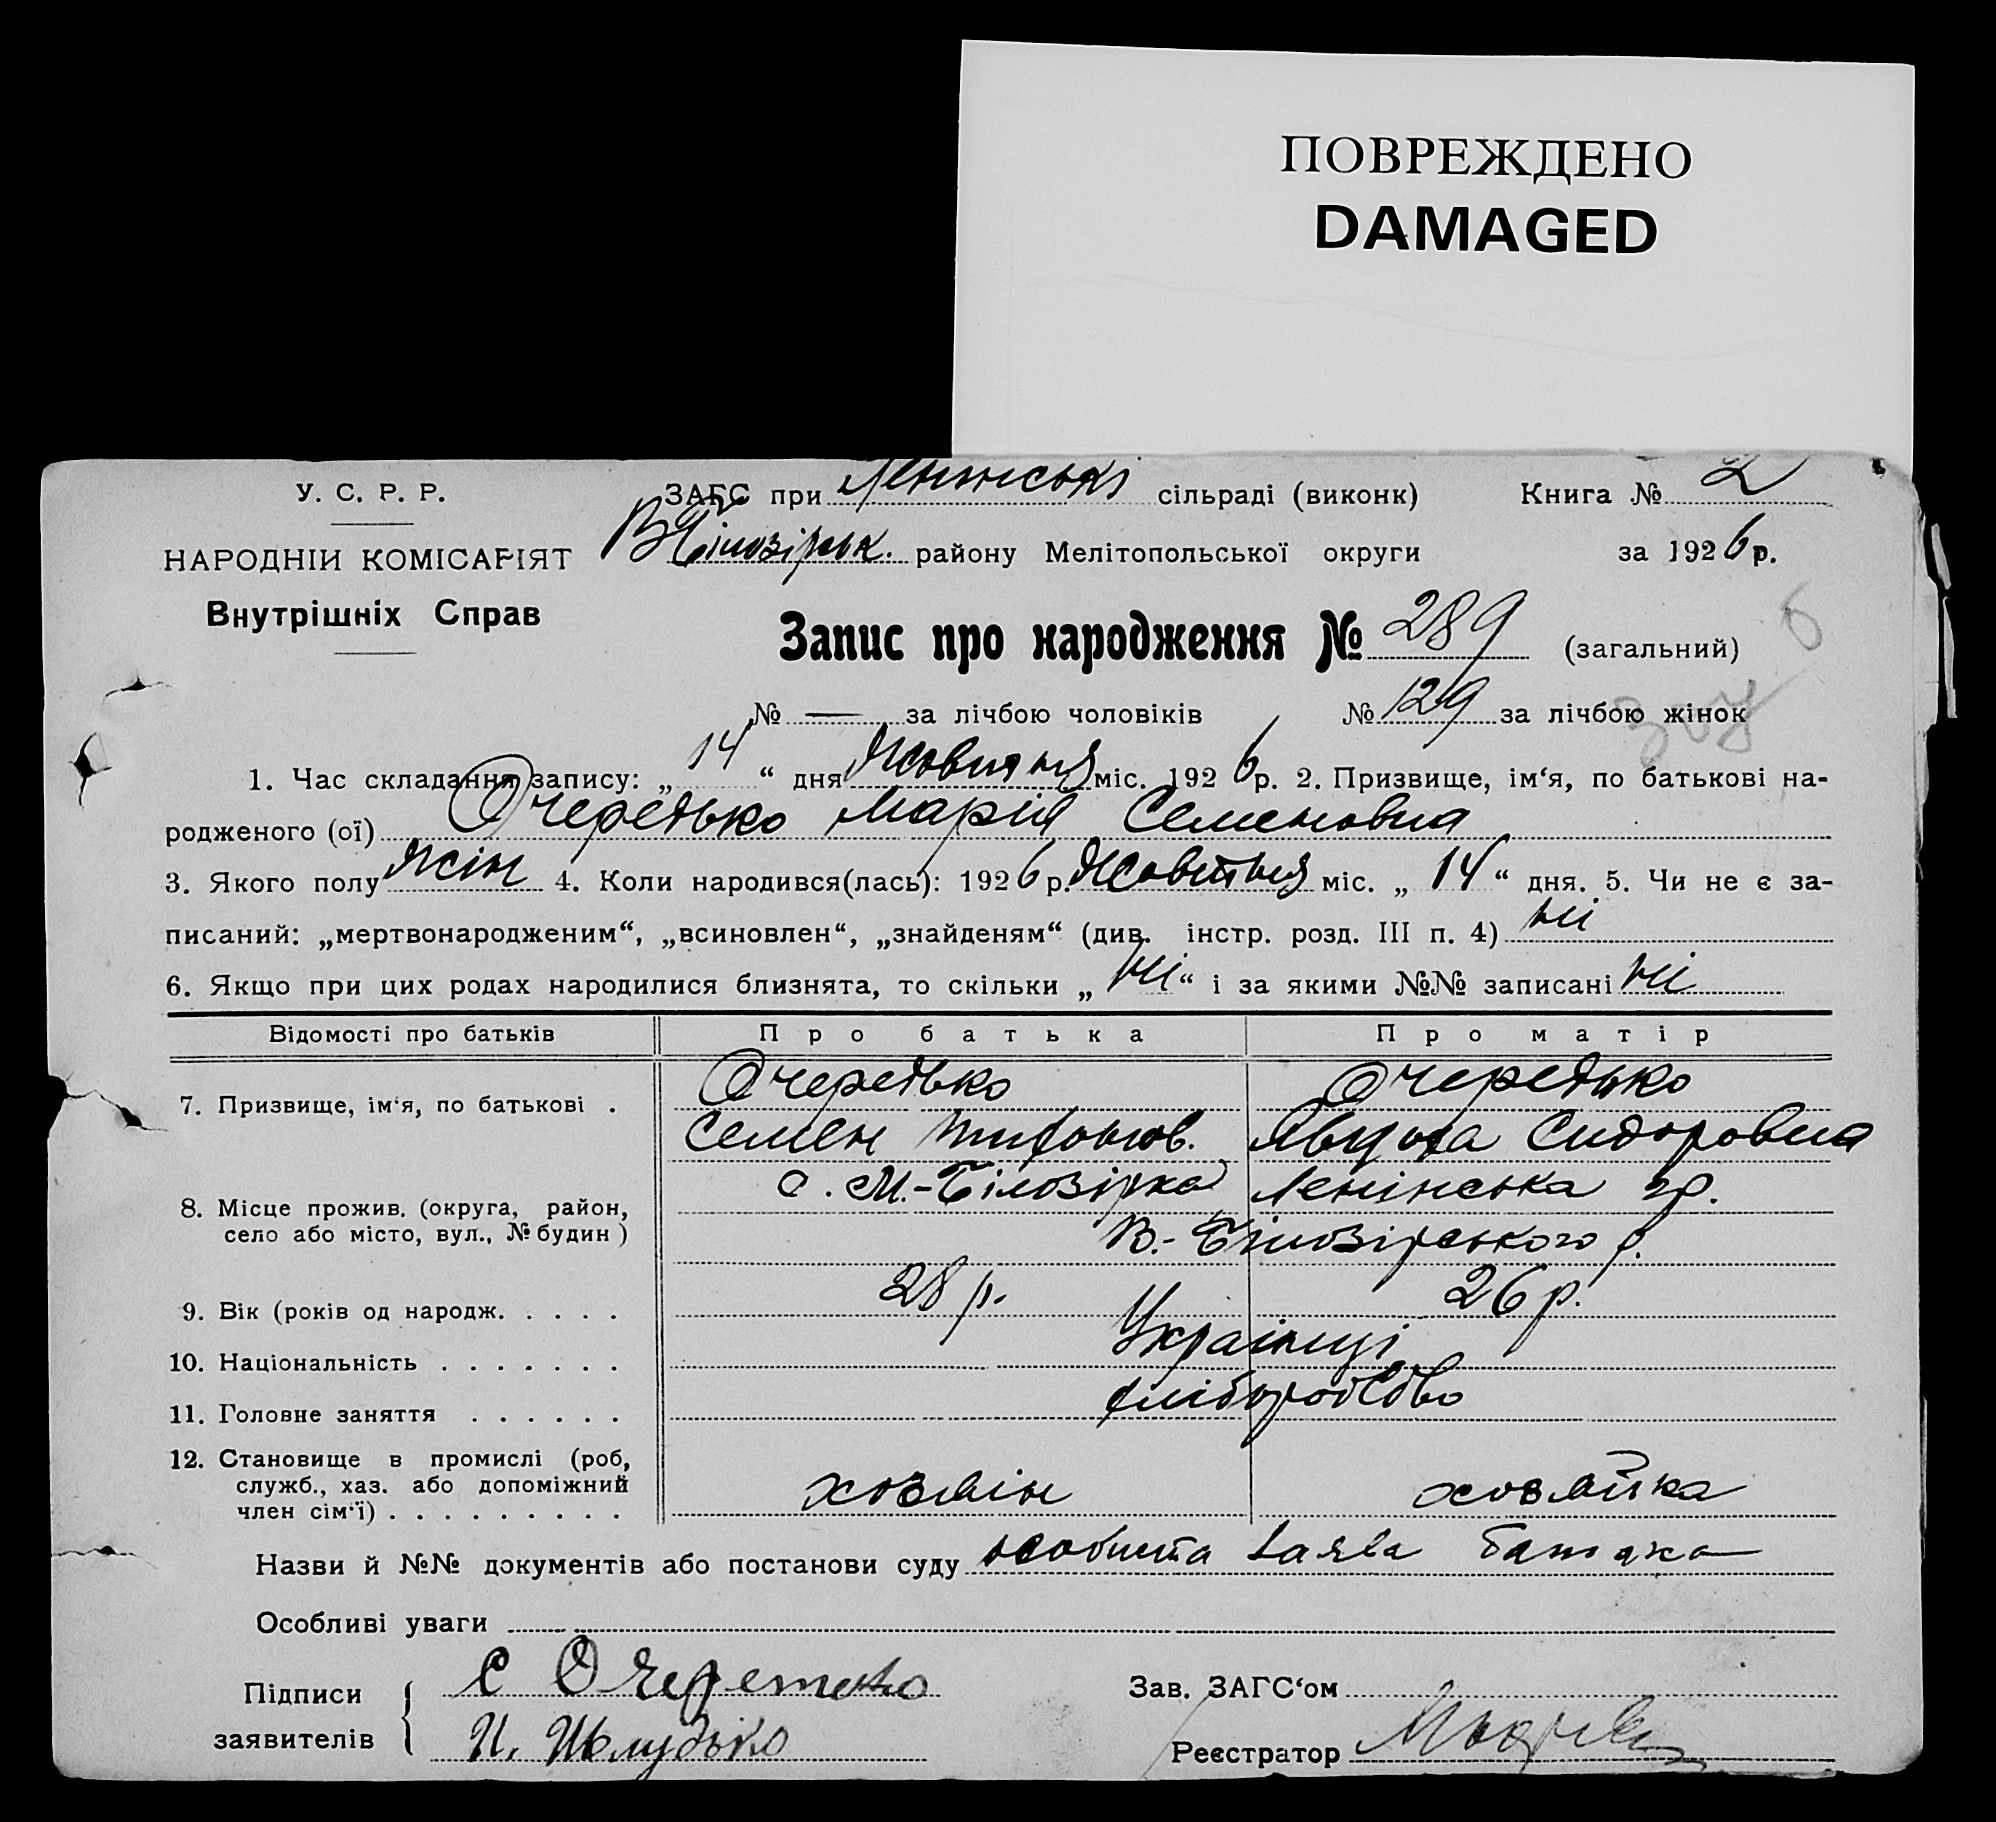 ПОВРЕЖДЕНО
DAMAGED
У. С. Р. Р.
НАРОДНІЙ КОМІСАРІЯТ
Внутрішніх Справ
ЗАГС при Ленінські сільраді (виконк) Книга № 2
В Білозірськ. району Мелітопольської округи за 1926 р.
Запис про народження № 289 (загальний)
6
№ — за лічбою чоловіків № 129 за лічбою жінок
1. Час складання запису: „14“ дня Жовтня міс. 1926 р. 2. Призвище, ім‘я, по батькові на-
родженого (ої) Очередько Марія Семеновна
3. Якого полу жін 4. Коли народився(лась): 1926 р. Жовтня міс. „14“ дня. 5. Чи не є за-
писаний: „мертвонародженим“, „всиновлен“, „знайденям“ (див. інстр. розд. III п. 4) ні
6. Якщо при цих родах народилися близнята, то скільки „ні“ і за якими №№ записані ні
Відомості про батьків Про батька Про матір
7. Призвище, ім‘я, по батькові . Очередько Очередько
Семен Явдоха Сидоровна
8. Місце прожив. (округа, район, село або місто, вул., № будин) с. М.-Білозірка Ленінська гр.
В.-Білозірського р.
9. Вік (років од народж. . . . . 28 р. 26 р.
10. Національність . . . . . . . Українці
11. Головне заняття . . . . . . хліборобство
12. Становище в промислі (роб,
служб., хаз. або допоміжний
член сім‘ї) . . . . . . . . . хозяін хозяйка
Назви й №№ документів або постанови суду особиста заява батька
Особливі уваги
Підписи
заявителів
С Очеретько
И.
Зав. ЗАГС‘ом
Реєстратор